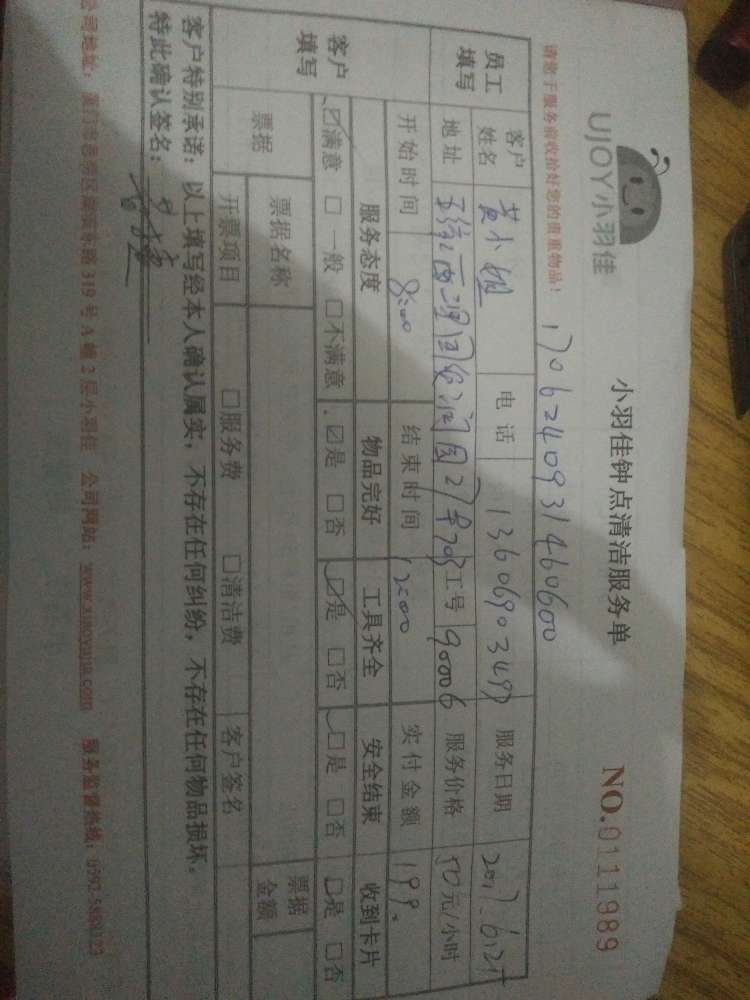 UJOY小羽佳
小羽佳钟点清洁服务单
NO.0111989
请您于服务前收拾好您的贵重物品！
1706240931460600
员工填写
客户姓名 黄小姐 电话 服务日期
地址 27 703 工号 90006 服务价格 50元/小时
客户填写
开始时间 8:00 结束时间 12:00 实付金额 199.
服务态度 物品完好 工具齐全 安全结束 收到卡片
☑满意 □一般 □不满意 ☑是 □否 ☑是 □否 □是 □否 □是 □否
票据 票据名称 票据金额
开票项目 □服务费 □清洁费 客户签名
客户特别承诺：以上填写经本人确认属实，不存在任何纠纷，不存在任何物品损坏。
特此确认签名：
公司地址： 319号A幢2层小羽佳 公司网站：www.xiaoyujia.com 服务监督热线：